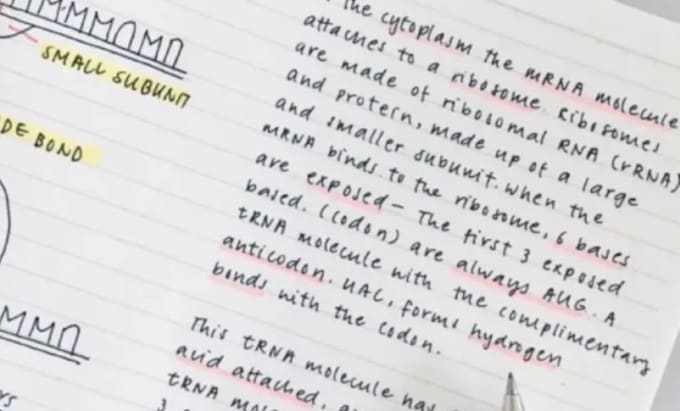 SMALL SUBUNIT
DE BOND
the cytoplasm the mRNA molecule
attaches to a ribosome. Ribosomes
are made of ribosomal RNA (rRNA)
and protein, made up of a large
and smaller subunit. When the
mRNA binds to the ribosome, 6 bases
are exposed – The first 3 exposed
based. (codon) are always AUG. A
tRNA molecule with the complimentary
anticodon. UAC, forms hydrogen
bonds with the codon.
This tRNA molecule has
acid attached,
tRNA